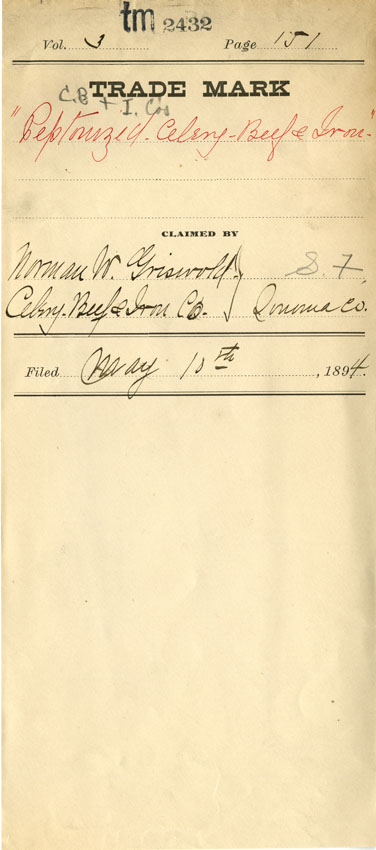 tm 2432
Vol. 3 Page 151
TRADE MARK
C.B + I. Co
"Peptonized-Celery-Beef & Iron-"
CLAIMED BY
Norman W. Griswold. } S. F.
Celery-Beef & Iron Co. } Sonoma Co.
Filed May 10th, 1894.